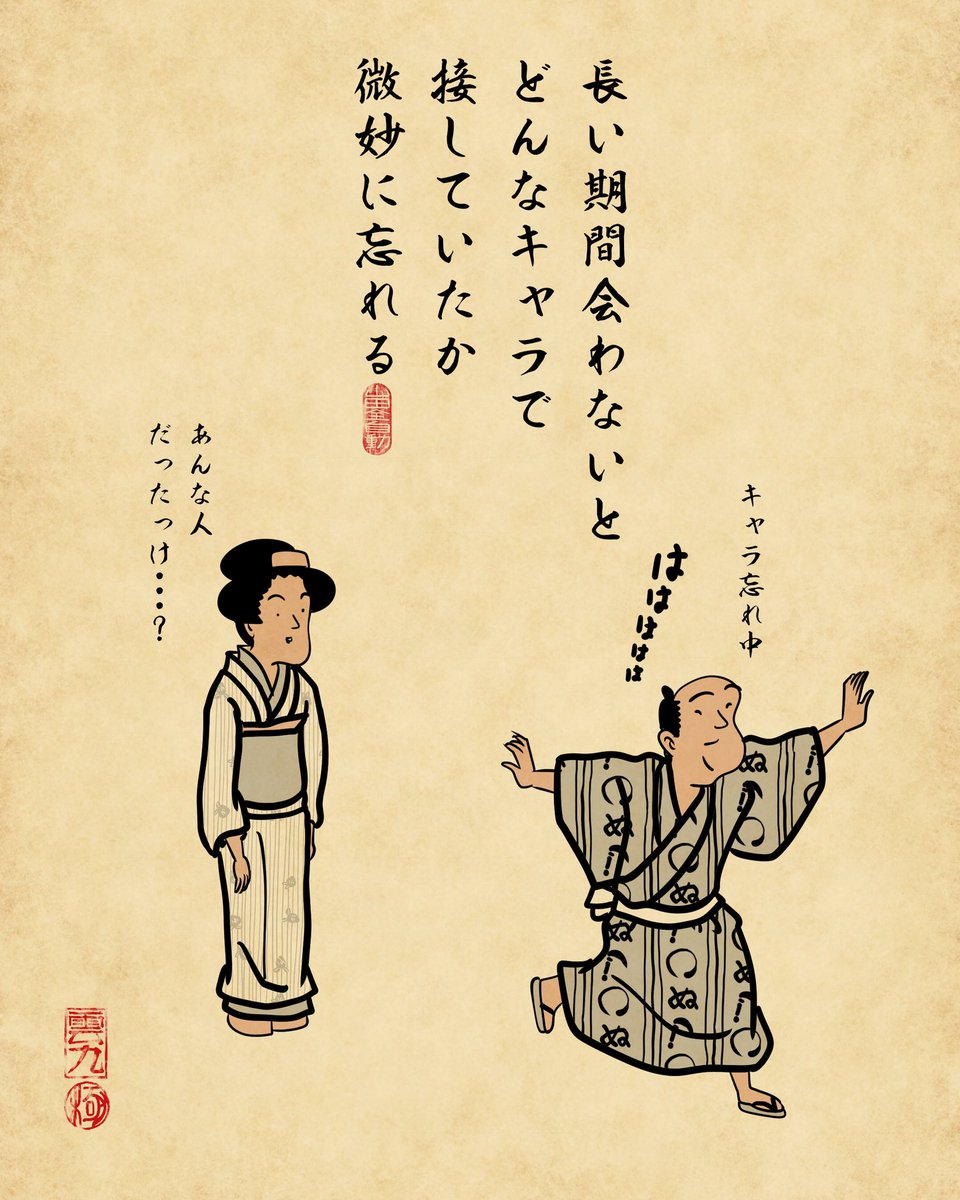 長い期間会わないと
どんなキャラで
接していたか
微妙に忘れる
キャラ忘れ中
ははははは
あんな人
だったっけ・・・?
ぬ
ぬ
ぬ
ぬ
ぬ
ぬ
ぬ